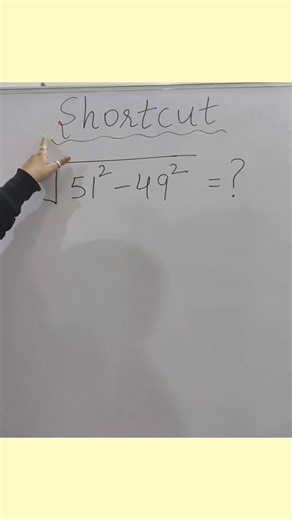 Shortcut
√51² - 49² = ?